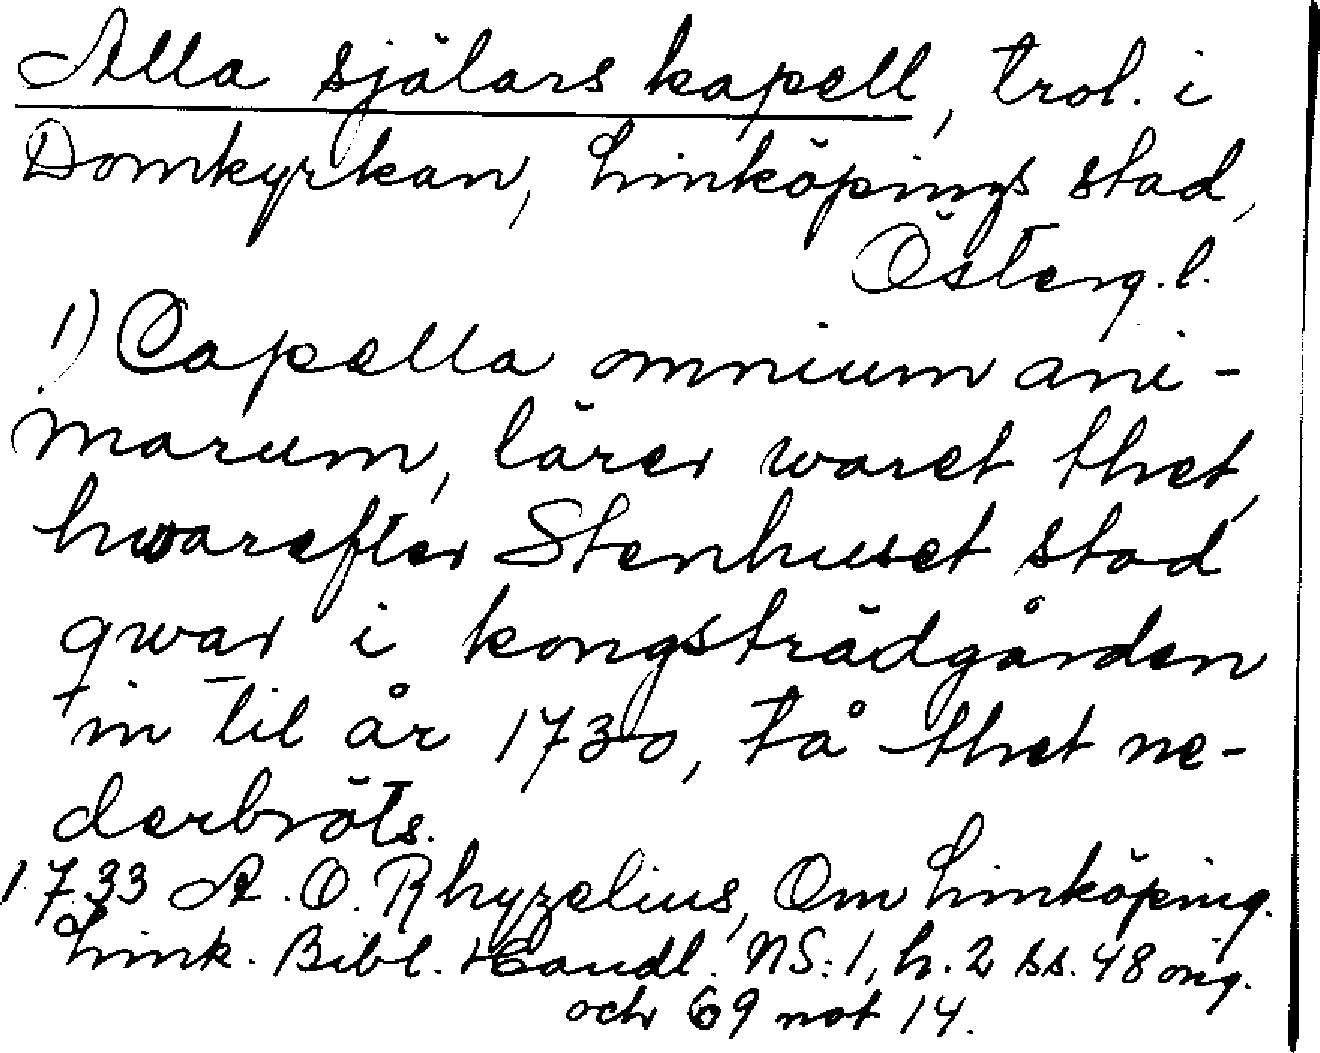 Alla själars kapell, trol. i
Domkyrkan, Linköpings stad,
Österg.l.
1) Capella omnium ani-
marum, lärer waret thet,
hwarefter Stenhuset stod
qwar i kongsträdgården
in til år 1730, tå thet ne-
derbröts.
1733 A. O. Rhyzelius, Om Linköping.
Link. Bibl. Handl. NS: 1, h. 2 ss. 48 orig.
och 69 not 14.